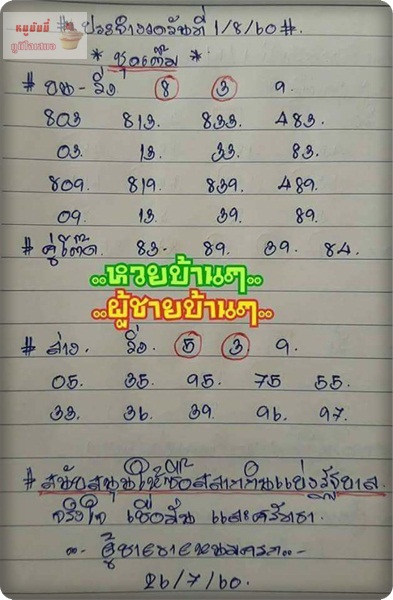 # ประจำงวดวันที่ 1/8/60 #.
* ชุดเต็ม *
# บน - วิ่ง 8 3 9.
803 813. 833. 483.
03. 13. 33. 83.
809. 819. 839. 489.
09. 13. 39. 89.
# คู่โต๊ด. 83. 89. 39. 84.
..หวยบ้านๆ..
..ผู้ชายบ้านๆ..
# ล่าง. วิ่ง 5 3 9.
05. 35. 95. 75 55.
33. 36. 39. 96. 97.
# สนับสนุนให้ซื้อสลากกินแบ่งรัฐบาล.
จริงใจ เชื่อมั่น และศรัทธา.
26/7/60.